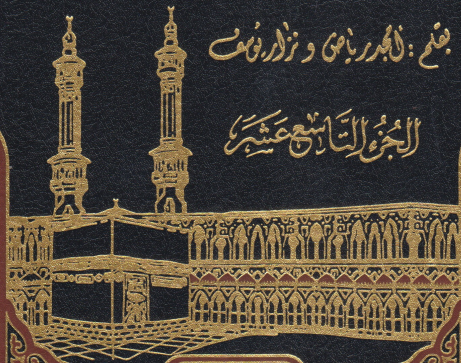 بقلم : امجد رياض و نزار يوسف
الجُزءُ التَّاسِع عَشَرَ